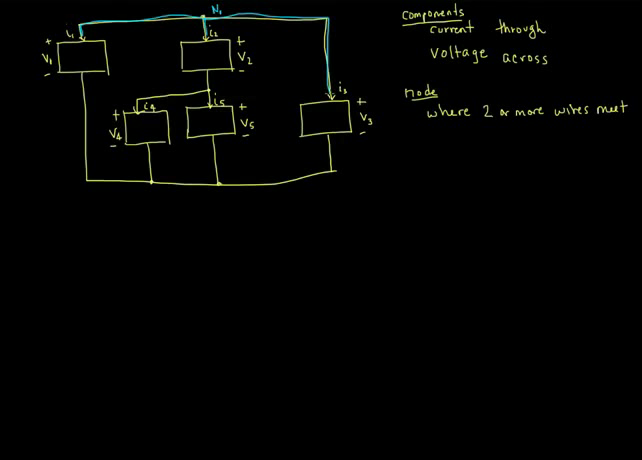 N₁
i₁
i₂
+
V₁
-
+
V₂
-
i₃
i₄
i₅
+
V₄
-
+
V₅
-
+
V₃
-
Components
current through
voltage across
node
where 2 or more wires meet